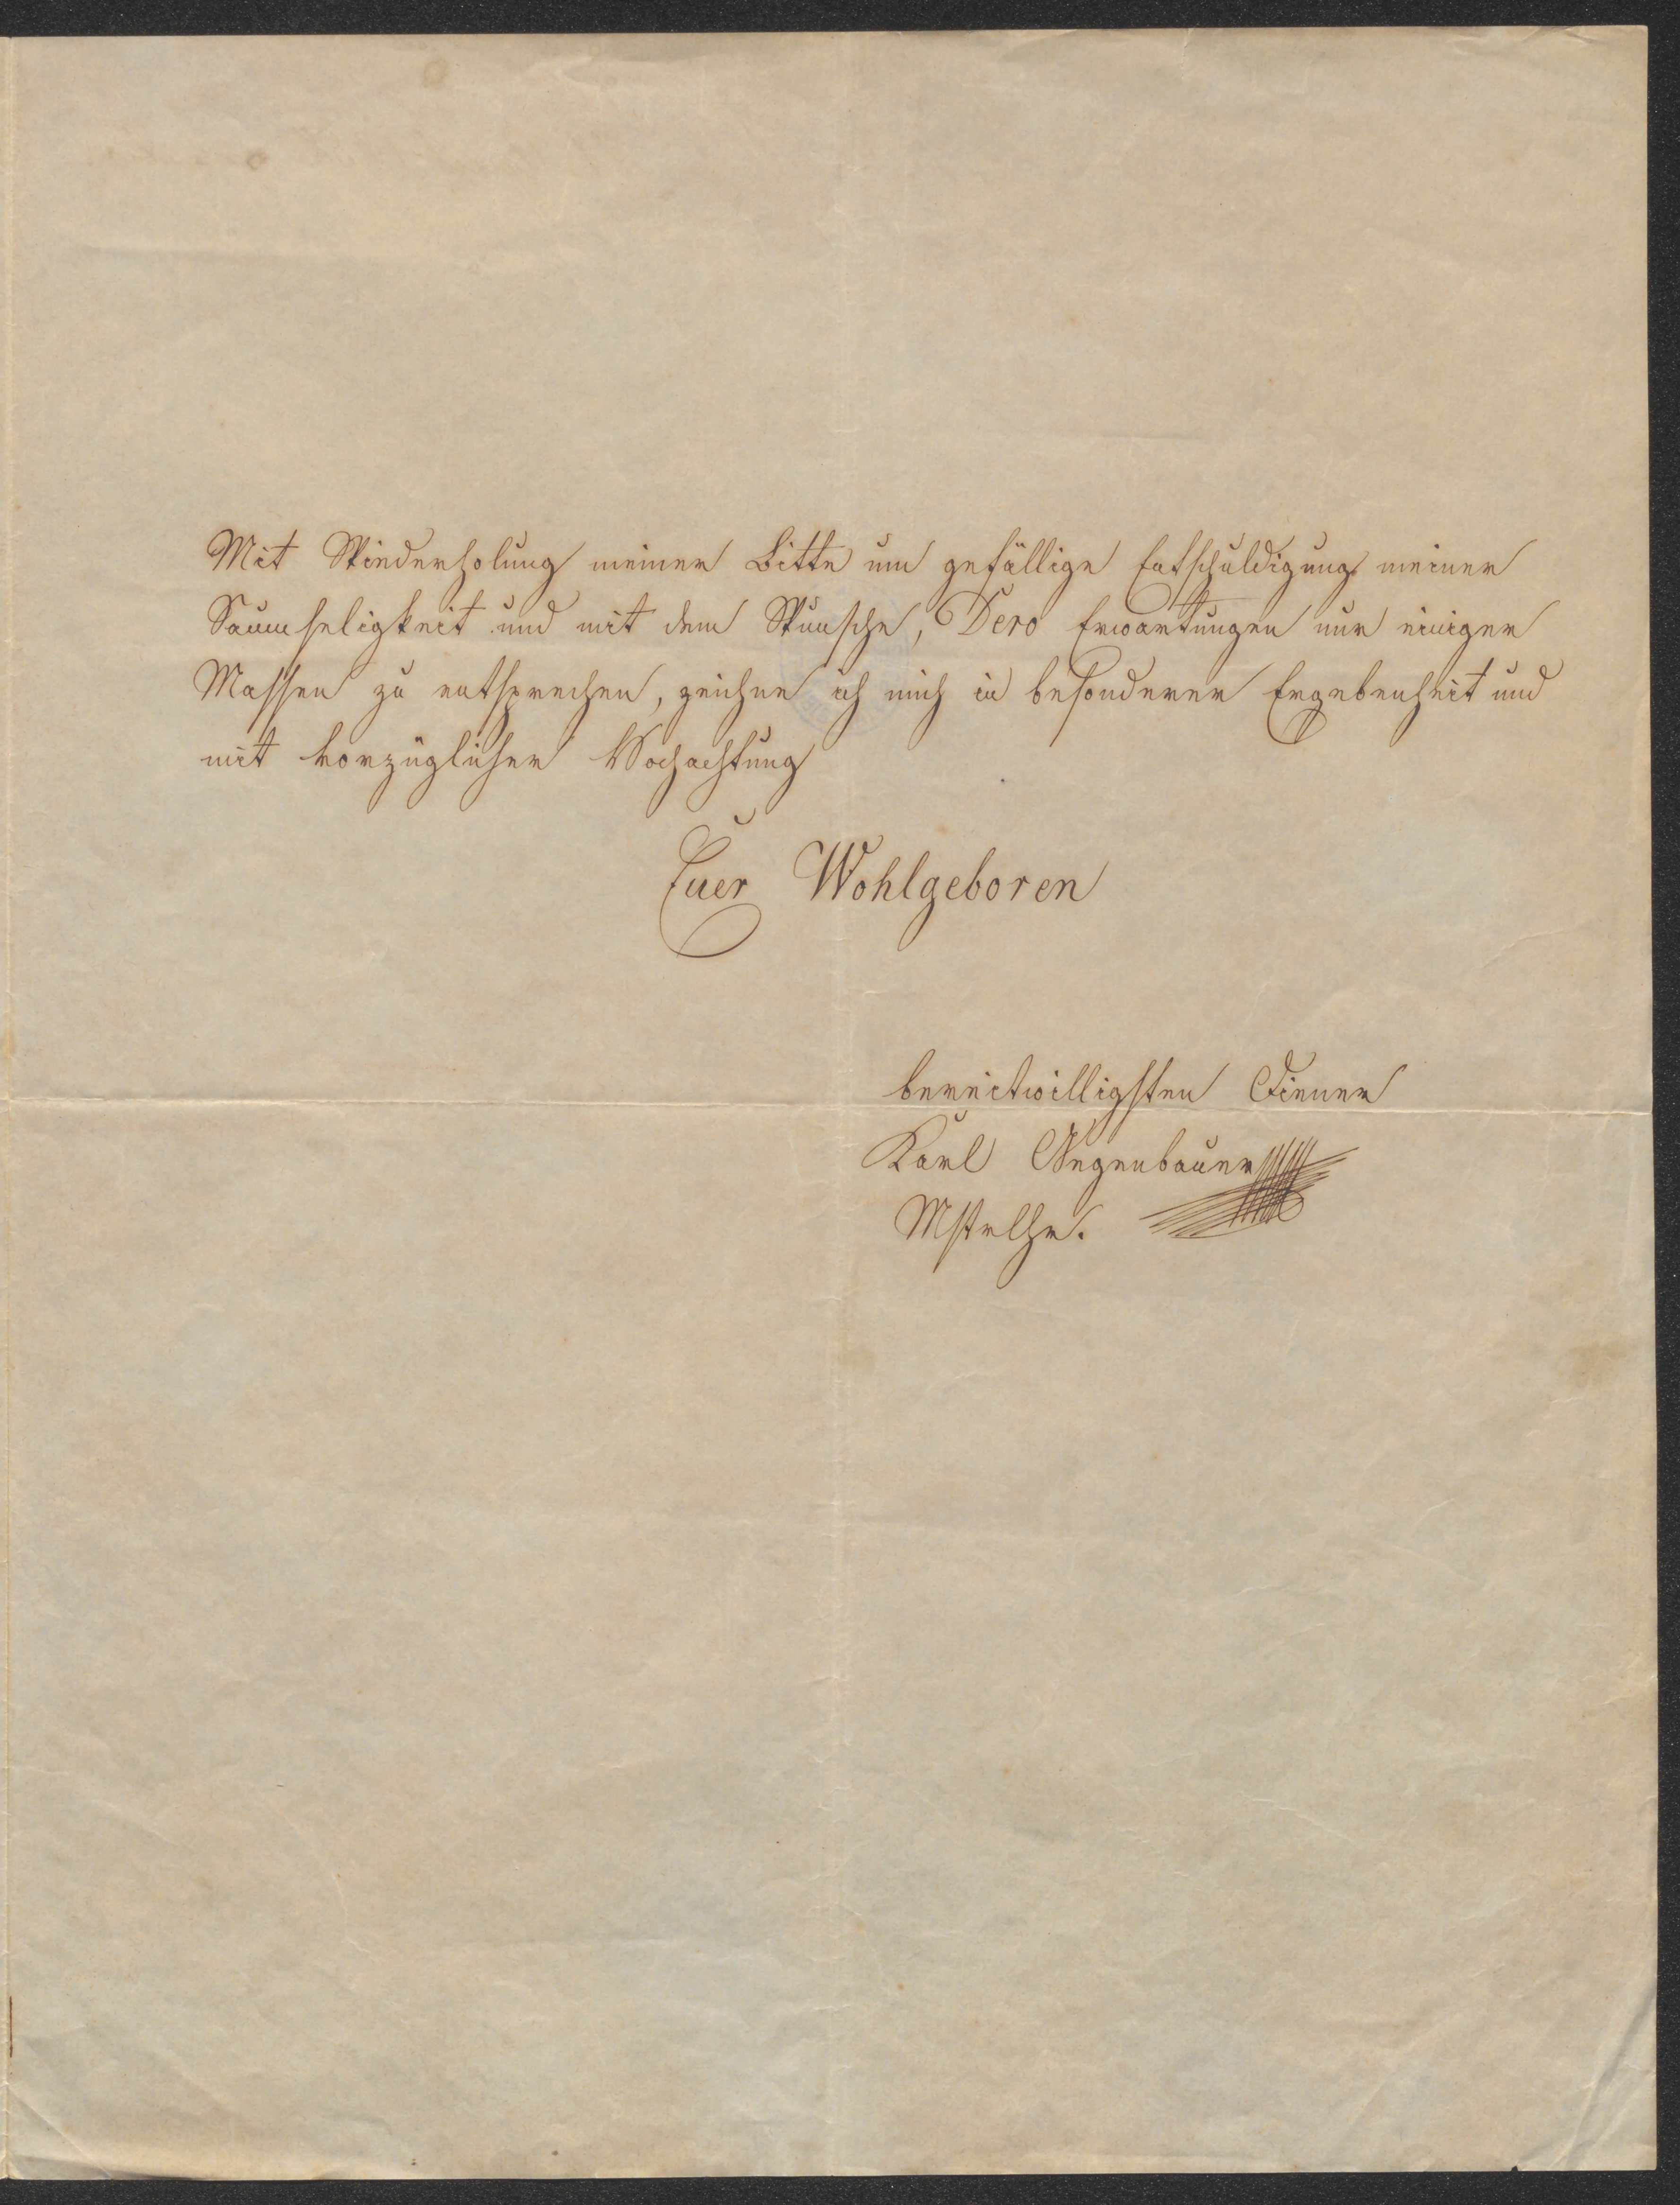 Mit Wiederholung meiner Bitte um gefällige Entschuldigung meiner
Saumseligkeit und mit dem Wunsche, Dero Erwartungen nur einiger
Massen zu entsprechen, zeichne ich mich in besonderer Ergebenheit und
mit vorzüglicher Hochachtung
Euer Wohlgeboren
bereitwilligsten Diener
Karl Gegenbauer